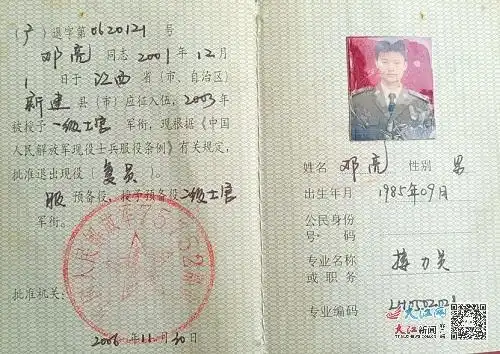 (广)退字第0620121号
邓亮同志2001年12月
1日于江西省(市、自治区)
新建县(市)应征入伍,2003年
被授予一级士官军衔,现根据《中国
人民解放军现役士兵服役条例》有关规定,
批准退出现役(复员)
服预备役,授予预备役二级士官
军衔。
批准机关:
2006年11月30日
姓名 邓亮 性别 男
出生年月 1985年09月
公民身份
号码
专业名称
或职务
专业编码
大江网
大江新闻